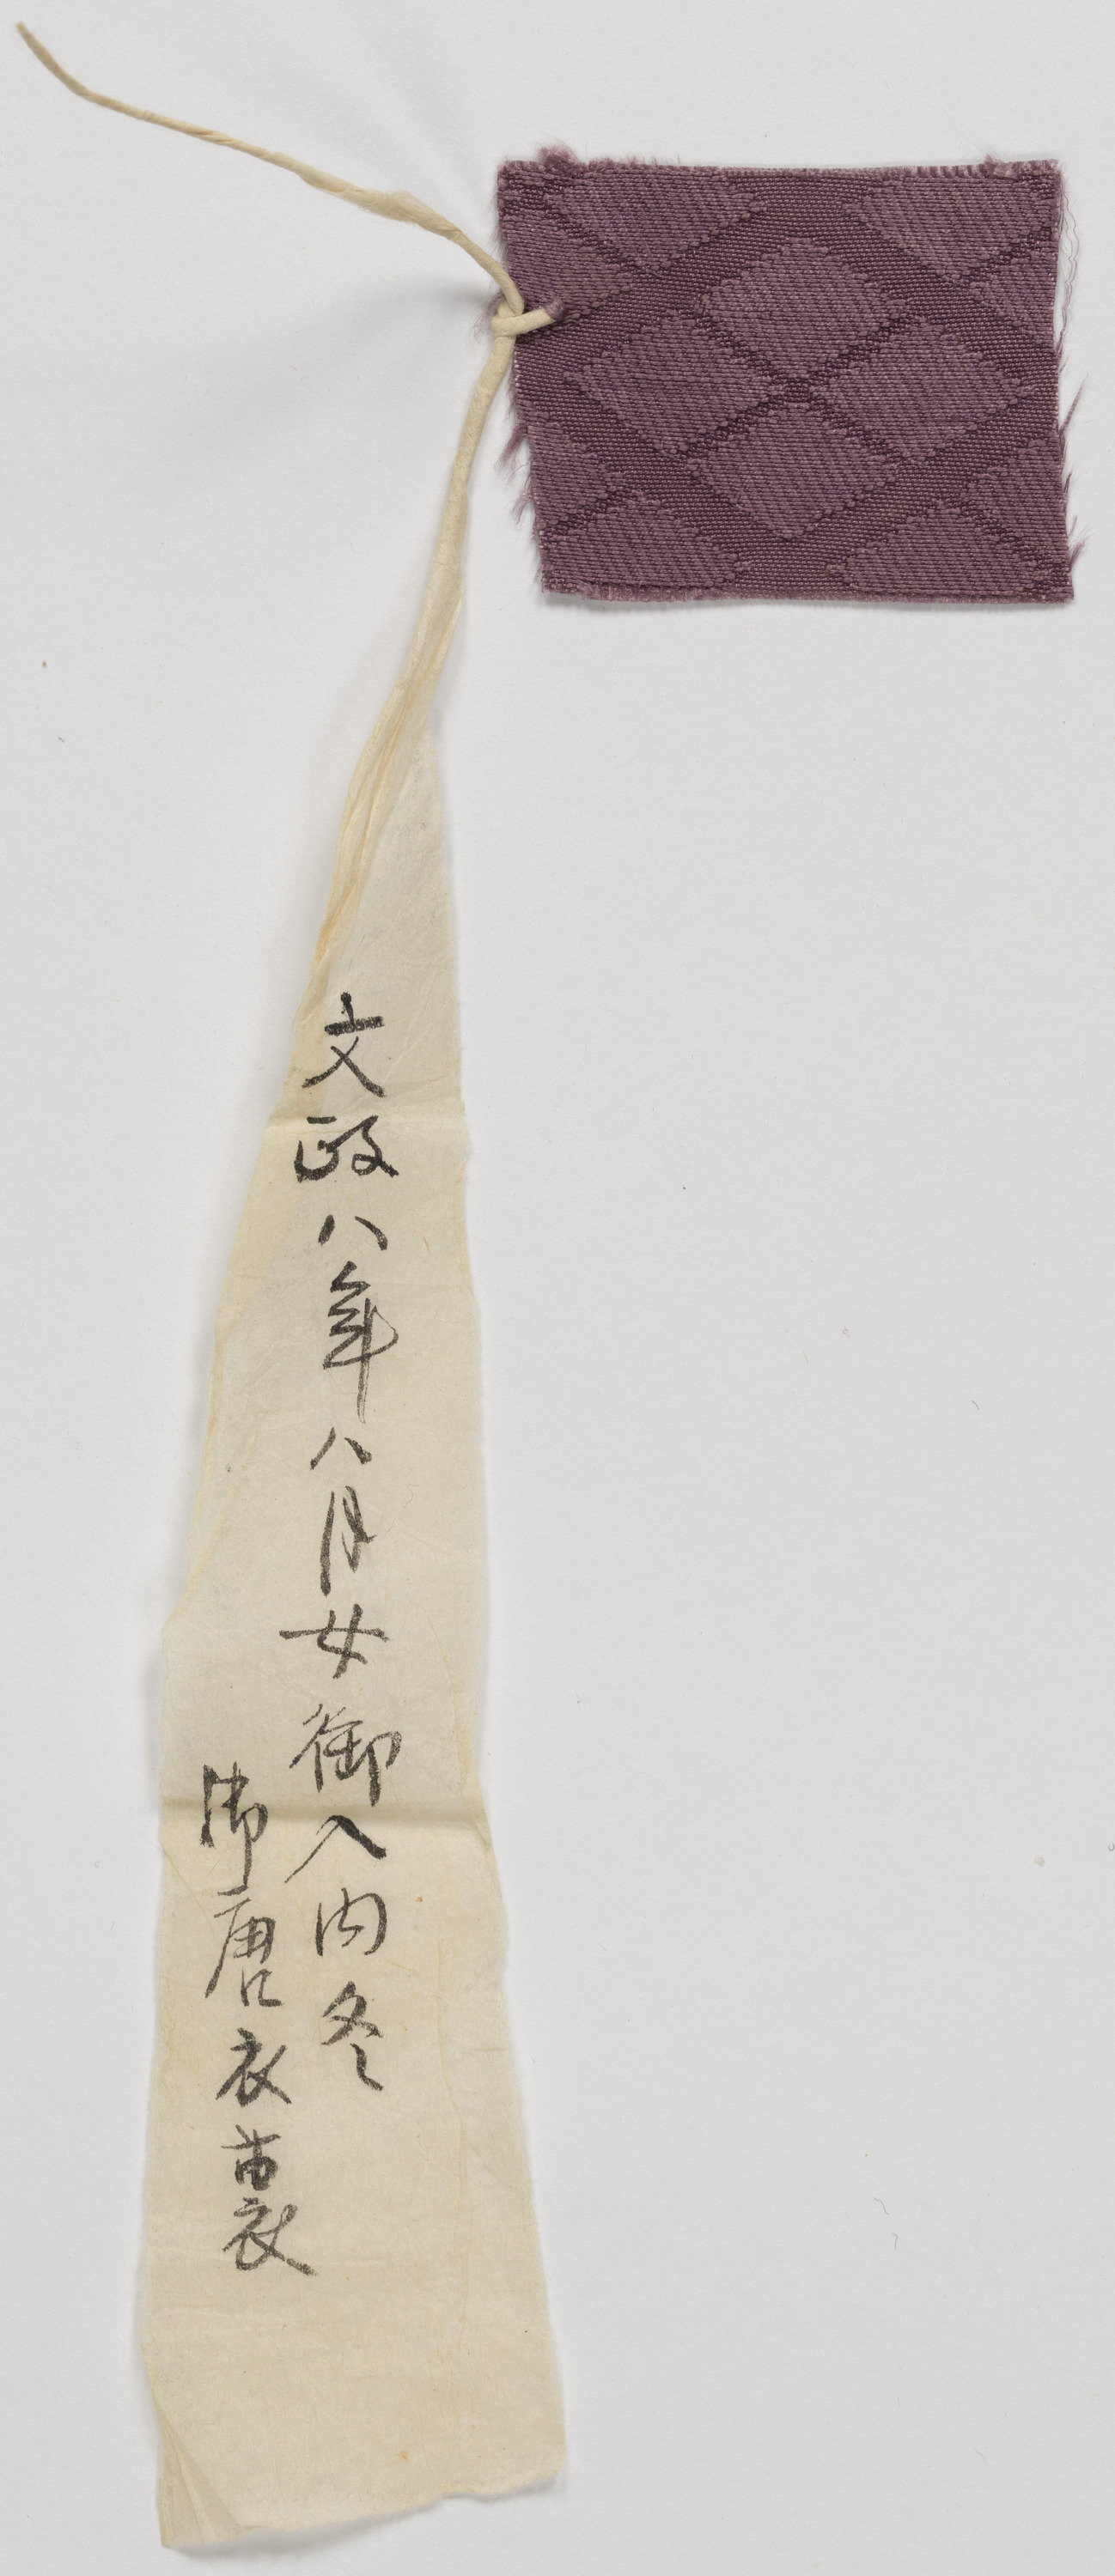 文政八年八月女御入内冬
御唐衣裏